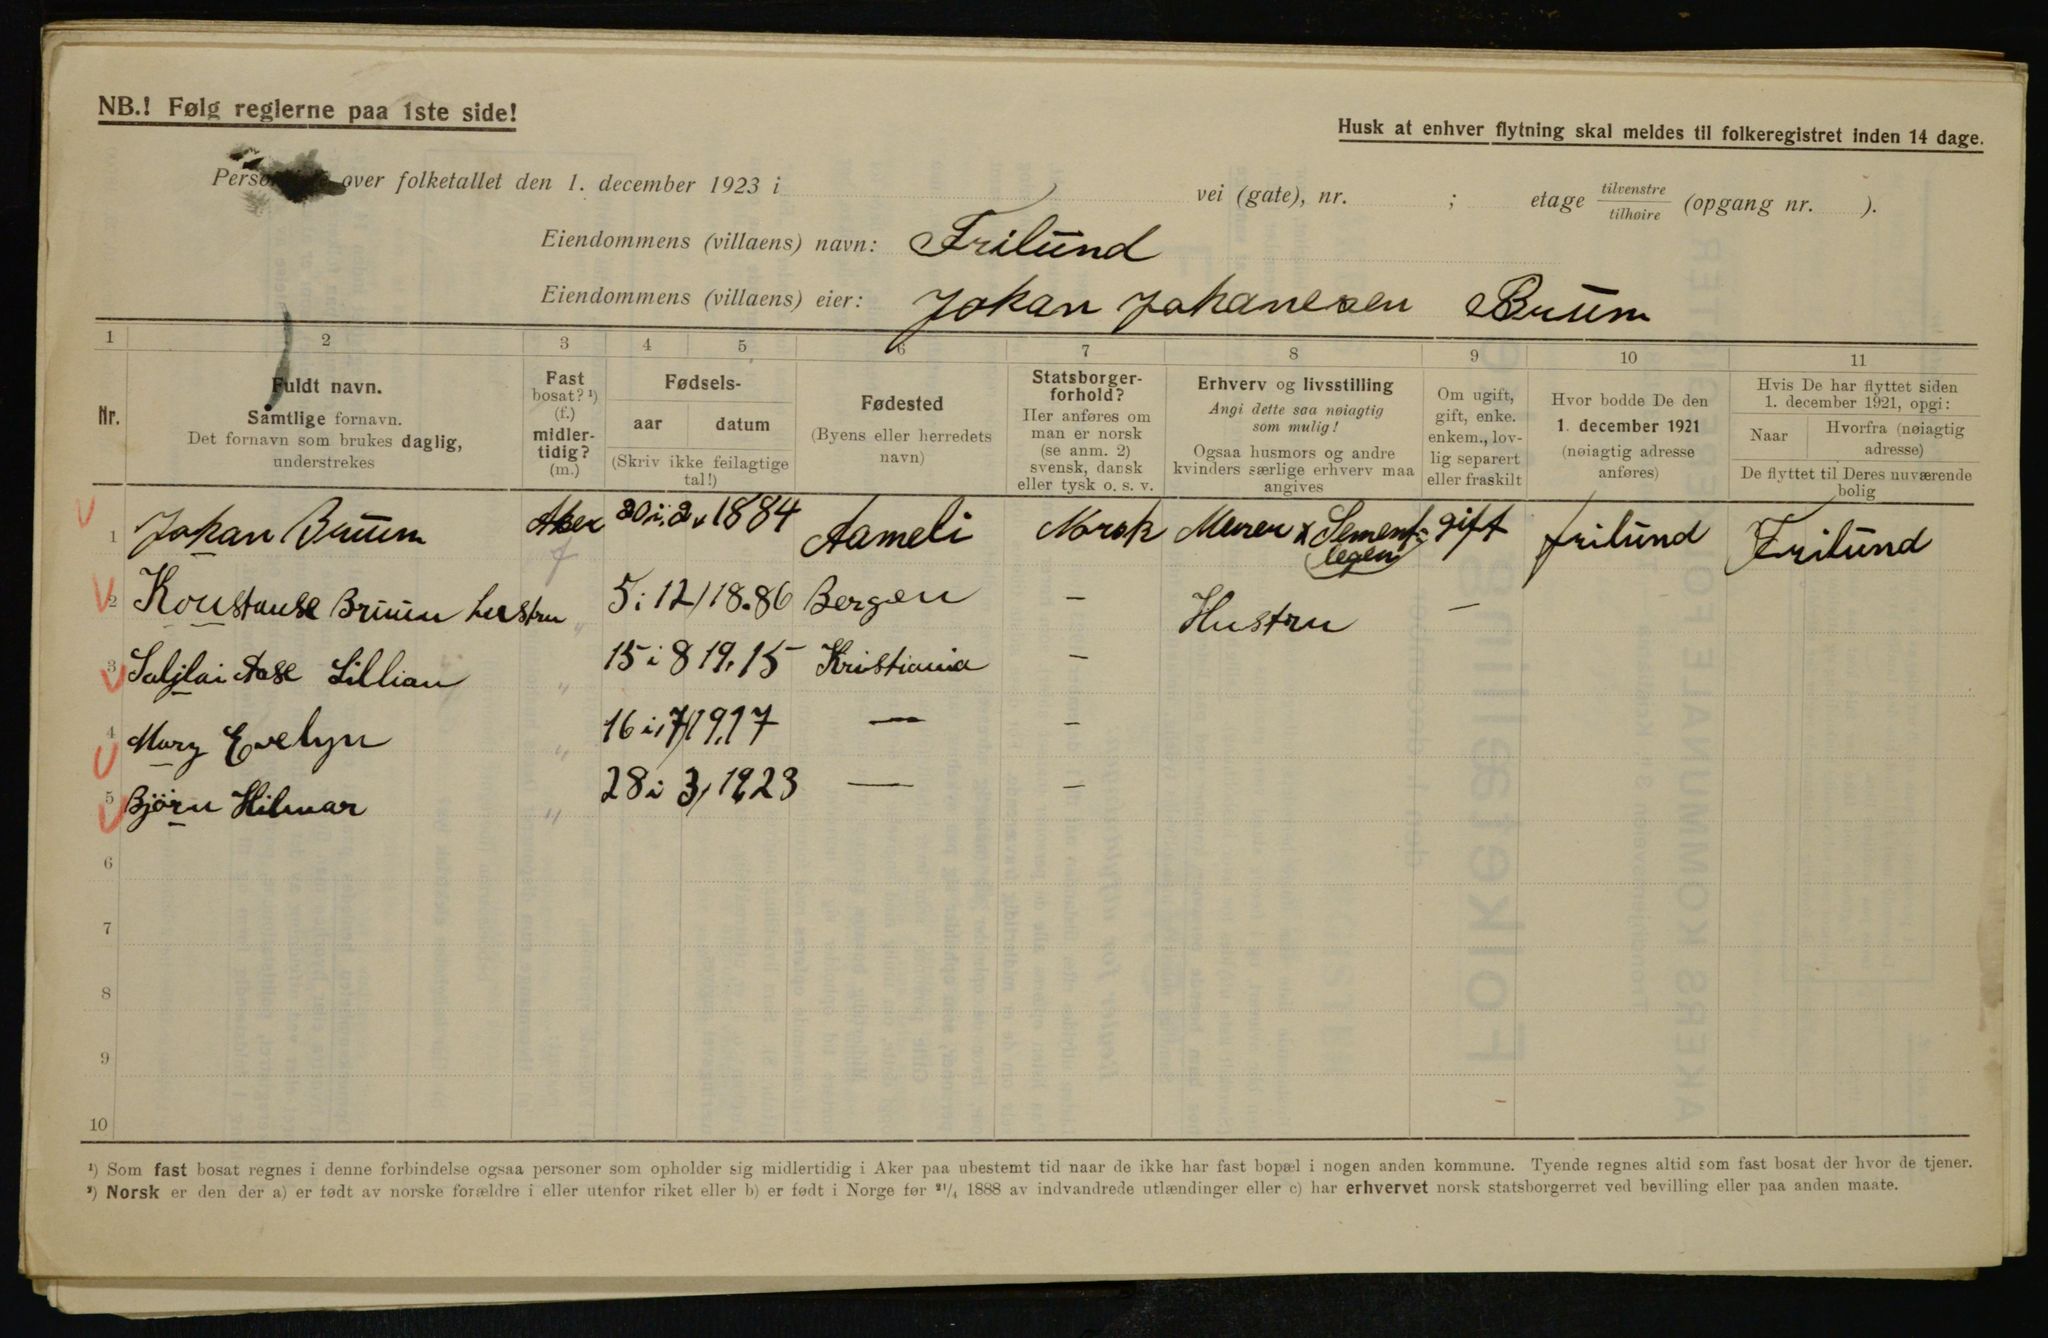 NB.! Følg reglerne paa 1ste side!
Husk at enhver flytning skal meldes til folkeregistret inden 14 dage.
over folketallet den 1. december 1923 i vei (gate), nr. ; etage tilvenstre tilhøire (opgang nr. ).
Eiendommens (villaens) navn: Frilund
Eiendommens (villaens) eier: Johan Johanesen Bruun
1 2 3 4 5 6 7 8 9 10 11
Nr.
Fuldt navn.
Samtlige fornavn.
Det fornavn som brukes daglig,
understrekes
Fast
bosat? ¹)
(f.)
midler-
tidig?
(m.)
Fødsels-
aar datum
(Skriv ikke feilagtige
tal!)
Fødested
(Byens eller herredets
navn)
Statsborger-
forhold?
Her anføres om
man er norsk
(se anm. 2)
svensk, dansk
eller tysk o. s. v.
Erhverv og livsstilling
Angi dette saa nøiagtig
som mulig!
Ogsaa husmors og andre
kvinders særlige erhverv maa
angives
Om ugift,
gift, enke.
enkem., lov-
lig separert
eller fraskilt
Hvor bodde De den
1. december 1921
(nøiagtig adresse
anføres)
Hvis De har flyttet siden
1. december 1921, opgi:
Naar Hvorfra (nøiagtig
adresse)
De flyttet til Deres nuværende
bolig
1 Johan Bruun Aker f 20 i 2 1884 Aameli Norsk Murer x Sement- gift frilund Frilund
2 Konstanse Bruun hustru " 5 i 12/ 18.86 Bergen — Hustru —
3 Aase Lillian " 15 i 8 19.15 Kristiania —
4 Mary Evelyn " 16 i 7/19.17 — —
5 Bjørn Hilmar " 28 i 3/ 1923 — —
6
7
8
9
10
¹) Som fast bosat regnes i denne forbindelse ogsaa personer som opholder sig midlertidig i Aker paa ubestemt tid naar de ikke har fast bopæl i nogen anden kommune. Tyende regnes altid som fast bosat der hvor de tjener.
²) Norsk er den der a) er født av norske forældre i eller utenfor riket eller b) er født i Norge før ²¹/₄ 1888 av indvandrede utlændinger eller c) har erhvervet norsk statsborgerret ved bevilling eller paa anden maate.